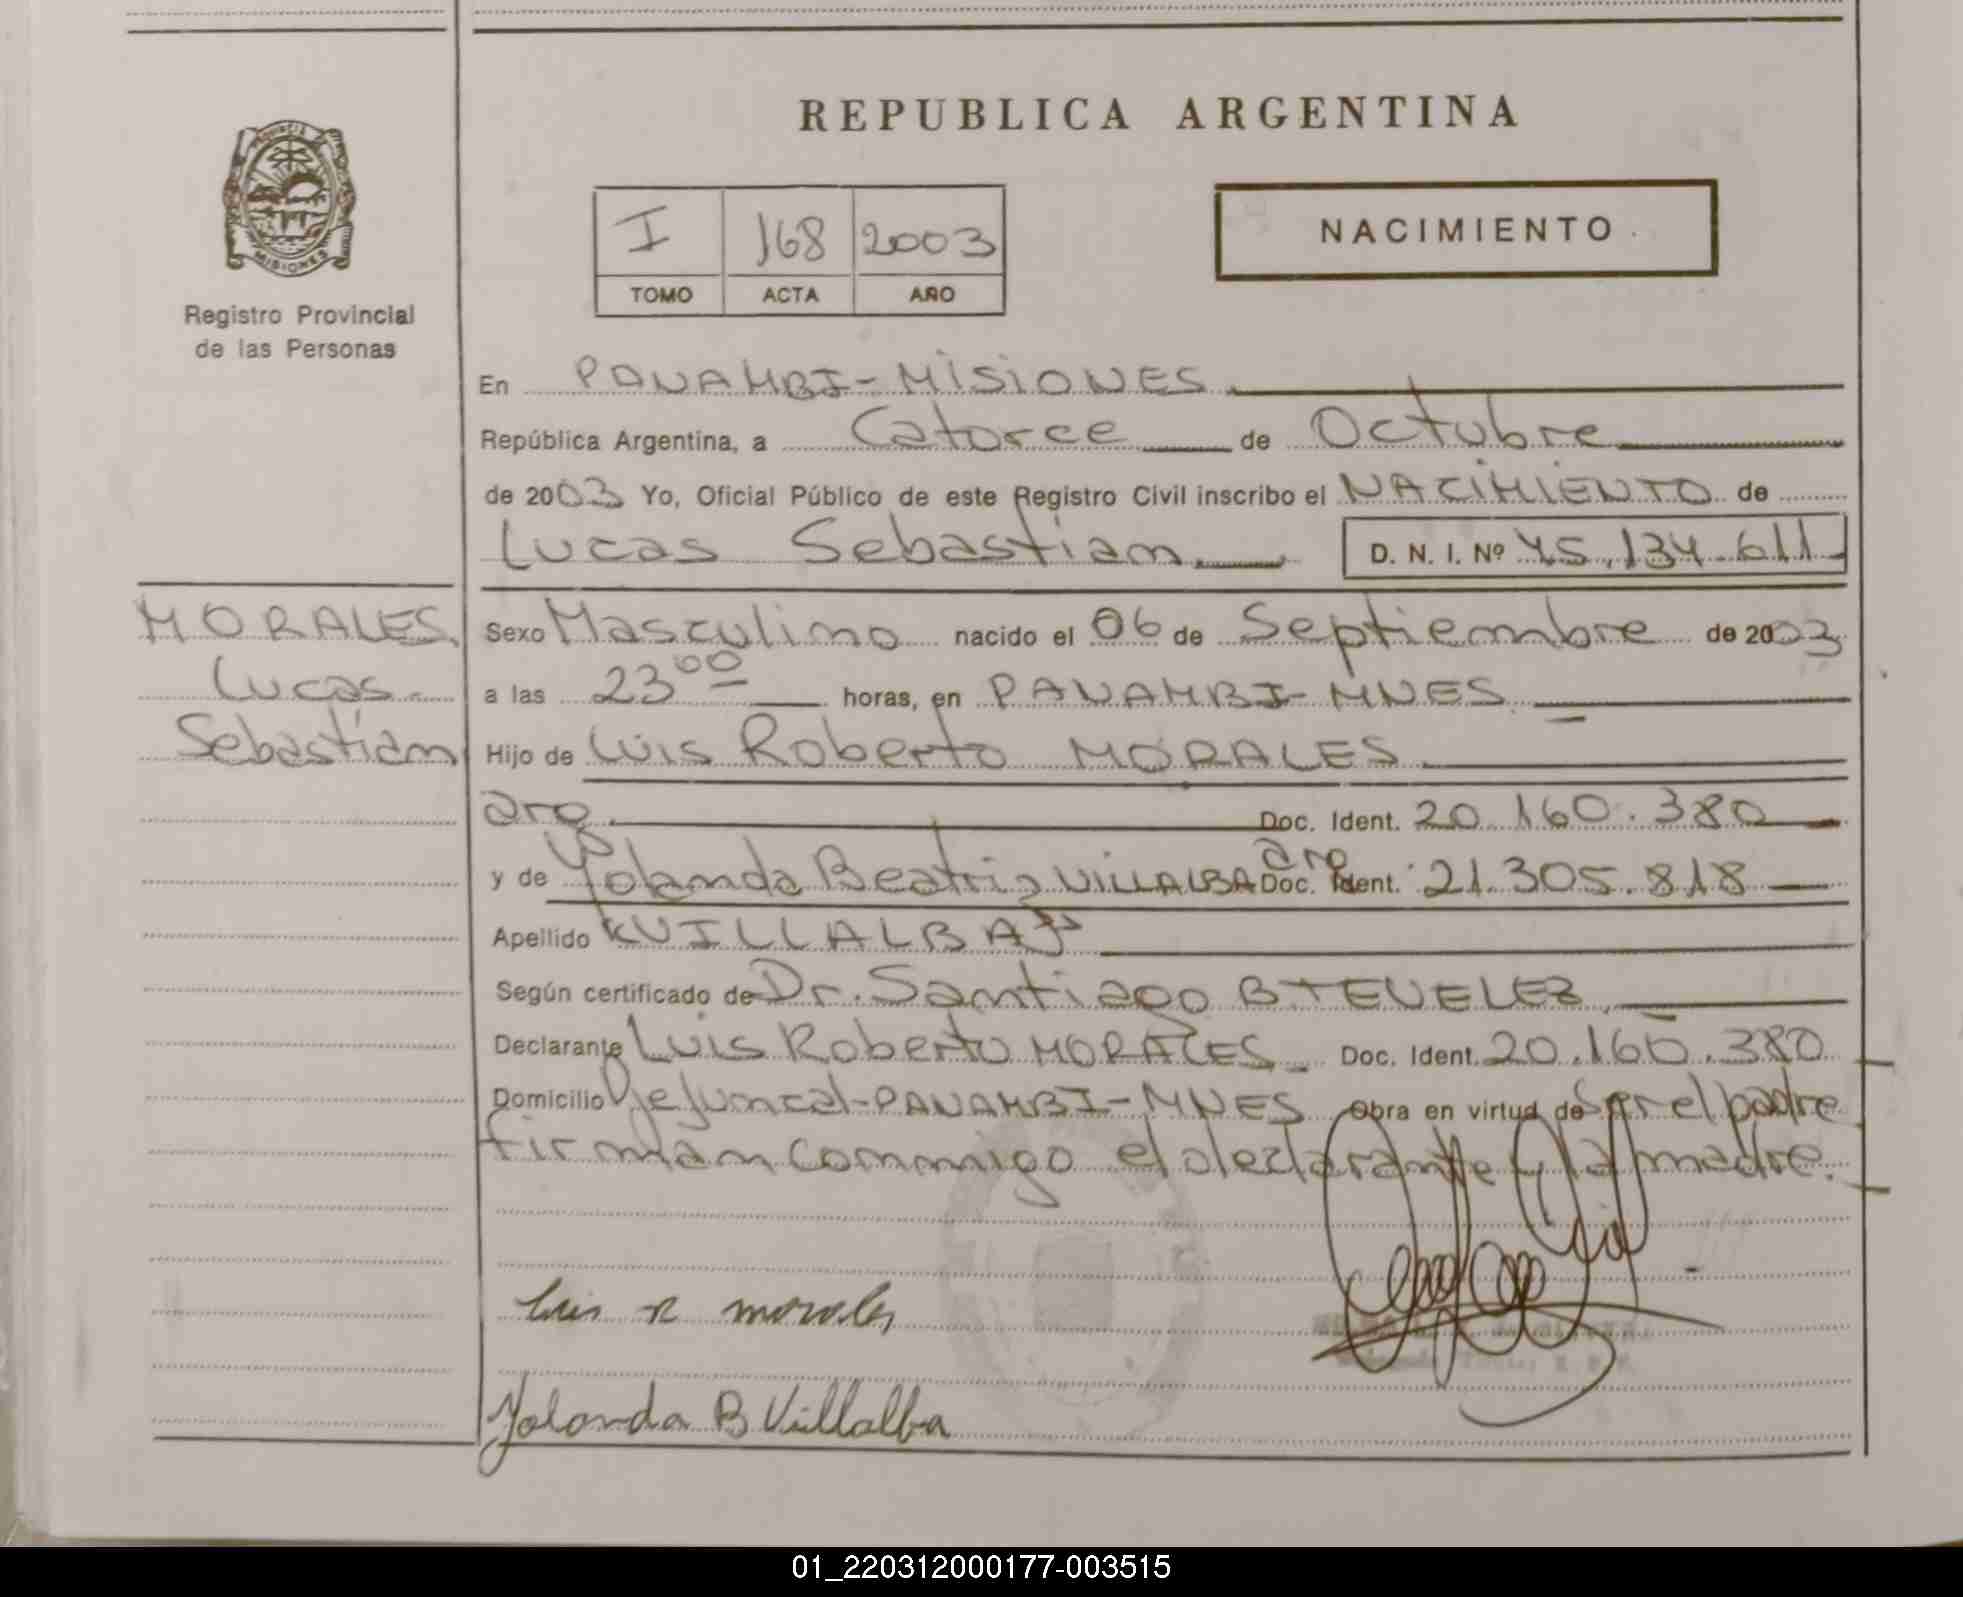 REPUBLICA ARGENTINA
PROVINCIA
MISIONES
Registro Provincial
de las Personas
I 168 2003
TOMO ACTA AÑO
NACIMIENTO
En PANAMBI-MISIONES
República Argentina, a Catorce de Octubre
de 2003 Yo, Oficial Público de este Registro Civil inscribo el NACIMIENTO de
Lucas Sebastian D. N. I. Nº 45.134.611
MORALES
Lucas
Sebastián
Sexo Masculino nacido el 06 de Septiembre de 2003
a las 23 00 horas, en PANAMBI-MNES
Hijo de Luis Roberto MORALES
arg. Doc. Ident. 20.160.380
y de Yolanda Beatriz VILLALBA arg Doc. Ident. 21.305.818
Apellido "VILLALBA"
Según certificado de Dr. Santiago B TEVELEZ
Declarante Luis Roberto MORALES Doc. Ident. 20.160.380
Domicilio PANAMBI-MNES Obra en virtud de ser el padre
firman conmigo el declarante y la madre.
Luis R morales
Yolanda B Villalba
01_220312000177-003515